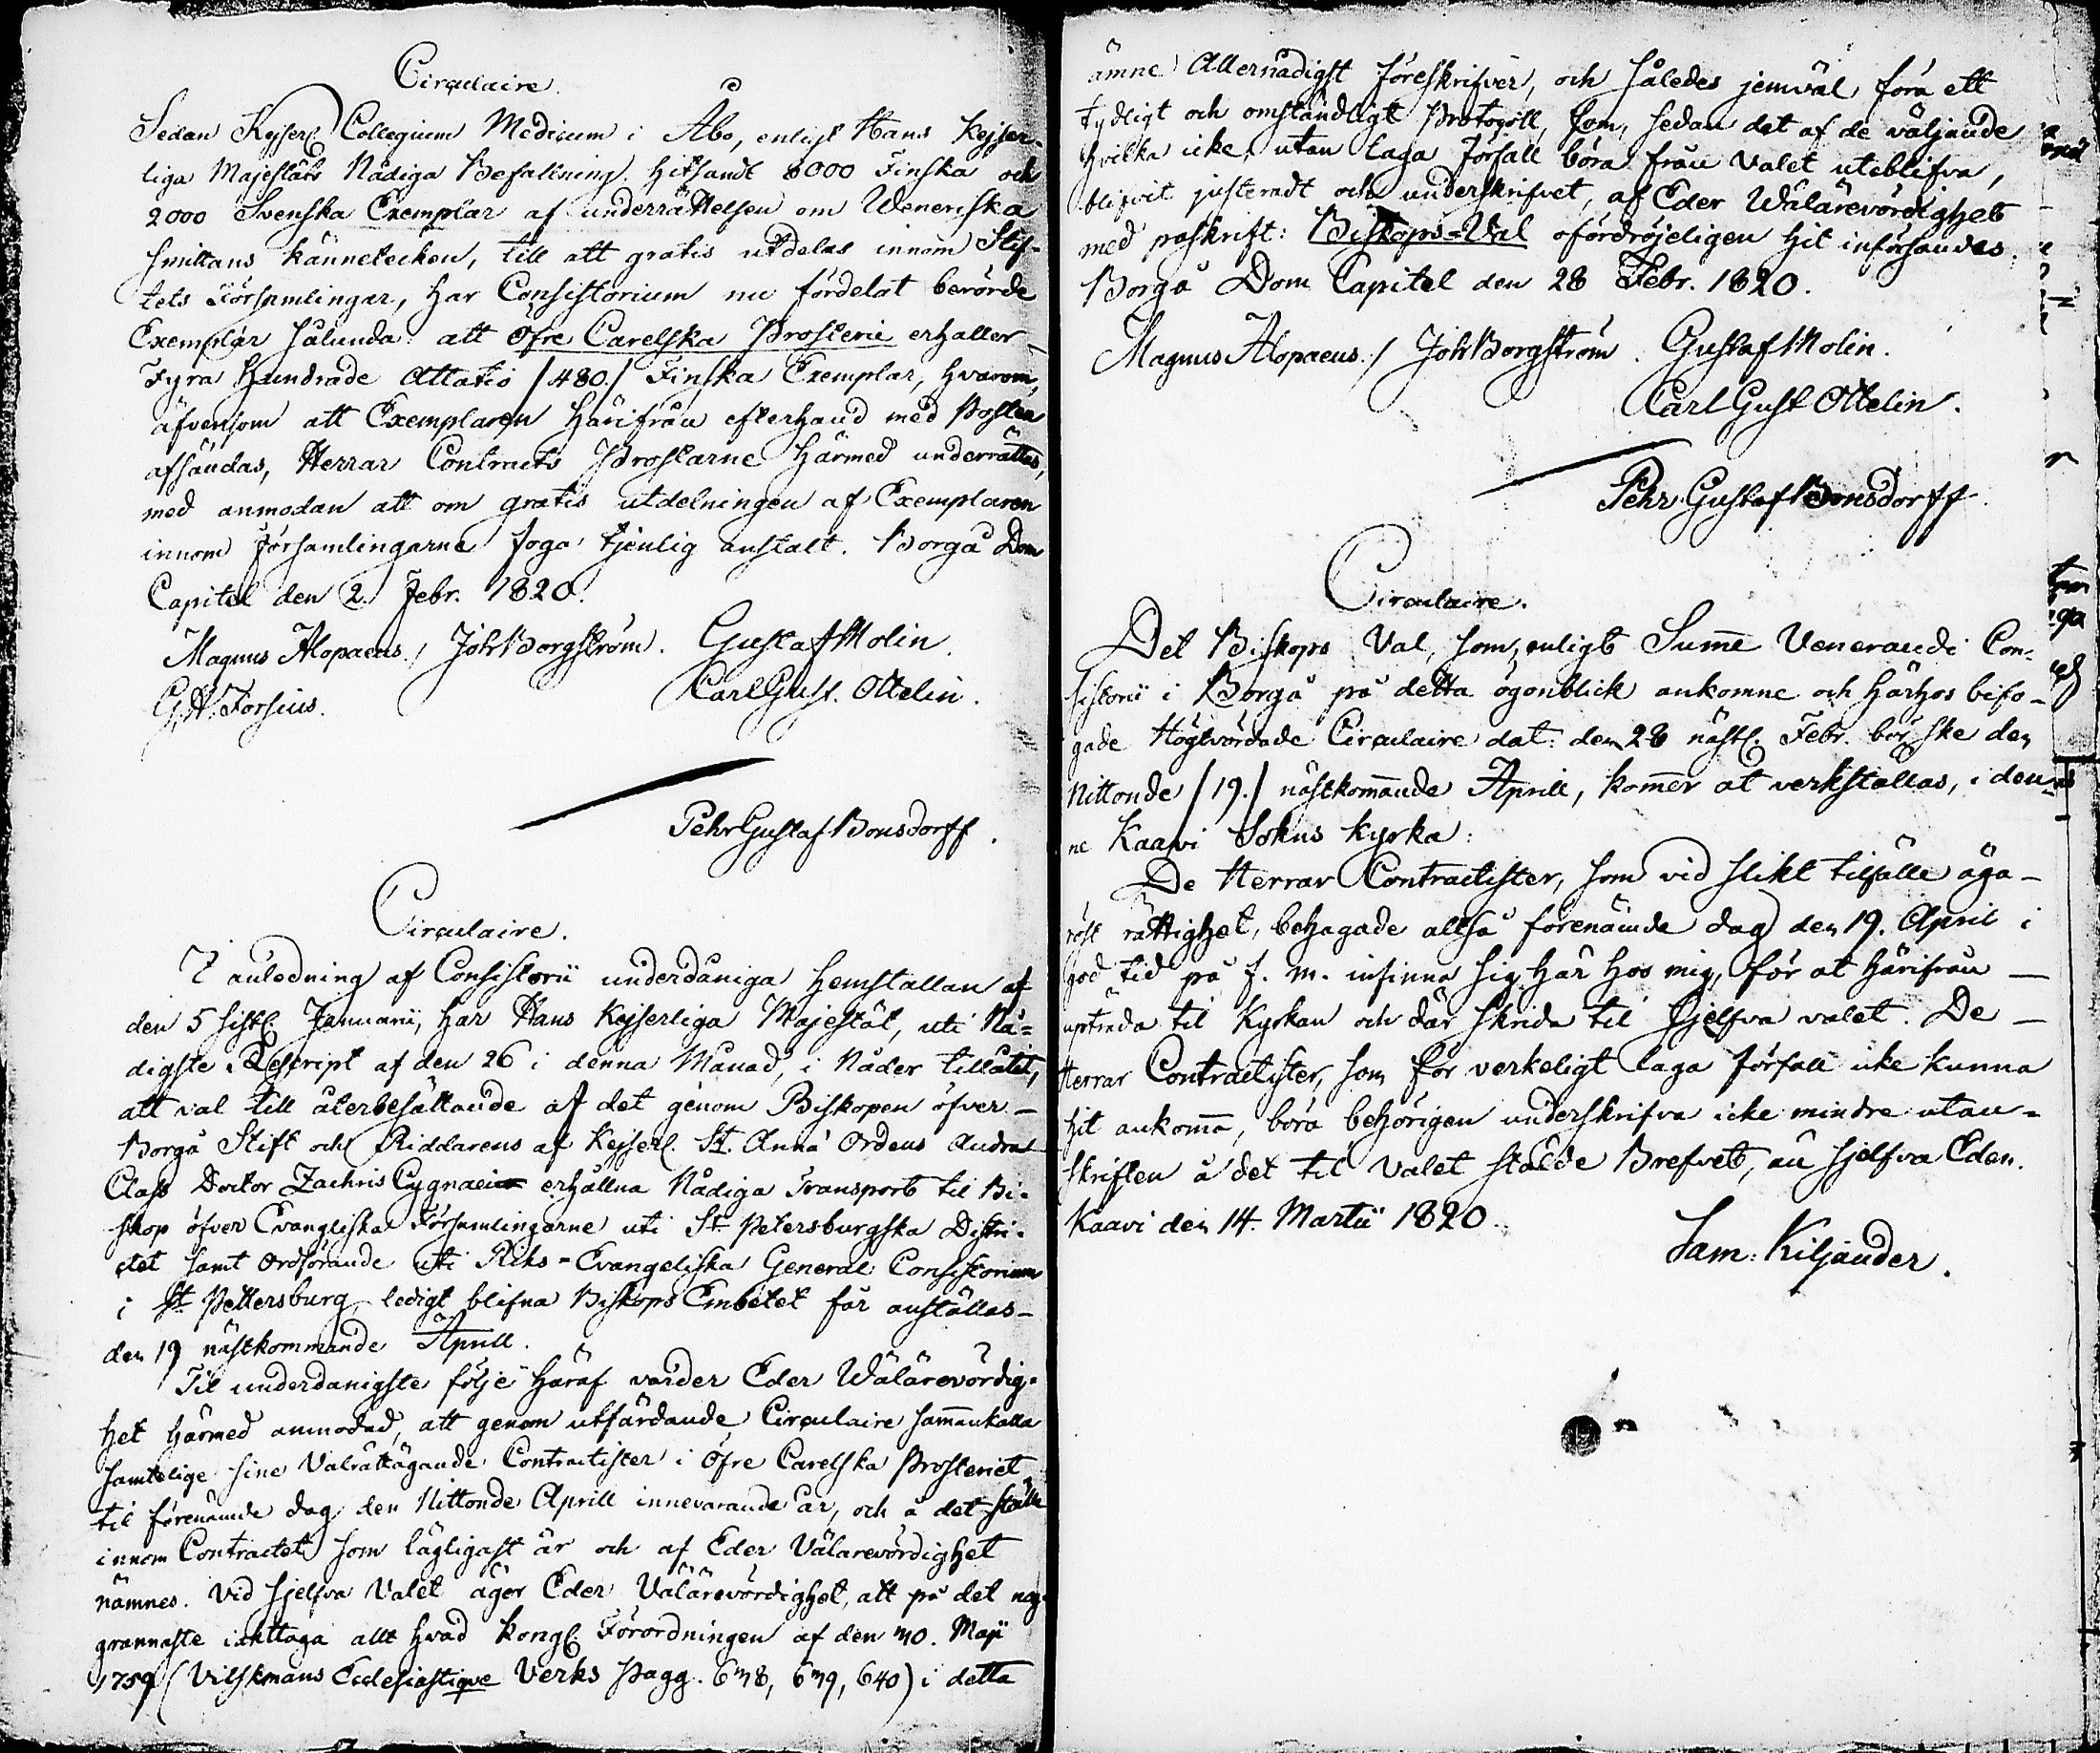 Circulaire.
Sedan Kejserl. Collegium Medicum i Åbo, enligt Hans Kejser-
liga Majestäts Nådiga Befallning, hitsandt 8000 Finska och
2000 Svenska Exemplar af underrättelsen om Weneriska
smittans kännetecken, till att gratis utdelas innom Stif-
tets Församlingar, har Consistorium nu fördelat berörde
Exemplar sålunda att Öfre Carelska Prosterie erhåller
Fyra Hundrade Åttatio /480./ Finska Exemplar, hvarom,
äfvensom att Exemplaren härifrån efterhand med Posten
afsändas, Herrar Contracts Prostarne härmed underrättas,
med anmodan att om gratis utdelningen af Exemplaren
innom Församlingarne foga tjenlig anstalt. Borgå Dom
Capitel den 2. Febr. 1820.
Magnus Alopaeus./ Joh Borgström. Gustaf Molin.
G. H. Forsius. Carl Gust. Ottelin.
Pehr Gustaf Bonsdorff.
Circulaire.
I anledning af Consistorii underdåniga hemställan af
den 5 sistl. Januarii, har Hans Kejserliga Majestät, uti Nå-
digste Rescript af den 26 i denna Månad, i Nåder tillåtit,
att val till återbesättande af det genom Biskopen öfver
Borgå Stift och Riddarens af Kejserl. St. Anna Ordens Andra
Class Doctor Zachris Cygnaei erhållna Nådiga Transport til Bi-
skop öfver Evangliska Församlingarne uti St. Petersburgska Distri-
ctet samt Ordförande uti Riks-Evangeliska General Consistorium
i St. Pettersburg, ledigt blifna Biskops Embetet får anställas
den 19 nästkommande April.
Til underdånigste följe häraf varder Eder Wälärevördig-
het härmed anmodad, att genom utfärdande Circulaire sam̄ankalla
samtelige sine Valrättägande Contractister i Öfre Carelska Prosteriet
til förenämde dag den Nittonde Aprill innevarande år, och å det ställe
innom Contractet som lägligast är och af Eder Välärevördighet
nämnes. Vid sjelfva Valet äger Eder Välärevördighet, att på det nog-
grannaste iakttaga allt hvad Kongl. Förordningen af den 30. Maji
1759 (Vilskmans Ecclesiastique Verks Pagg. 638, 639, 640) i detta
ämne Allernådigst föreskrifver, och således jemväl föra ett
tydligt och omständligt Protocoll, som, sedan det af de väljande
hvilka icke, utan laga förfall böra från Valet uteblifva,
blifvit justeradt och underskrifvet, af Eder Wälärevördighet
med påskrift: Biskops-Val ofördröjeligen hit införsändes.
Borgå Dom Capitel den 28 Febr. 1820.
Magnus Alopaeus./ Joh Borgström. Gustaf Molin.
Carl Gust Ottelin.
Pehr Gustaf Bonsdorff.
Circulaire.
Det Biskops Val, som, enligt Sum̄e Venerandi Con-
sistorii i Borgå på detta ögonblick ankomne och härhos bifo-
gade Högtvördade Circulaire dat: den 28 nästl. Febr. bör ske den
Nittonde /19./ nästkom̄ande Aprill, kom̄er at verkställas, i den-
ne Kaavi Sokns kyrka:
De Herrar Contractister, som vid slikt tilfälle äga
röst rättighet, behagade altså förenämde dag den 19. April i
god tid på f. m. infinna sig här hos mig, för at härifrån
upträda til Kyrkan och där skrida til sjelfva valet. De
Herrar Contractister, som för verkeligt laga förfall icke kunna
hit ankom̄a, böra behörigen underskrifva icke mindre utan-
skriften å det til Valet stälde Brefvet, än sjelfva Eden.
Kaavi den 14. Martii 1820.
Sam: Kiljander.